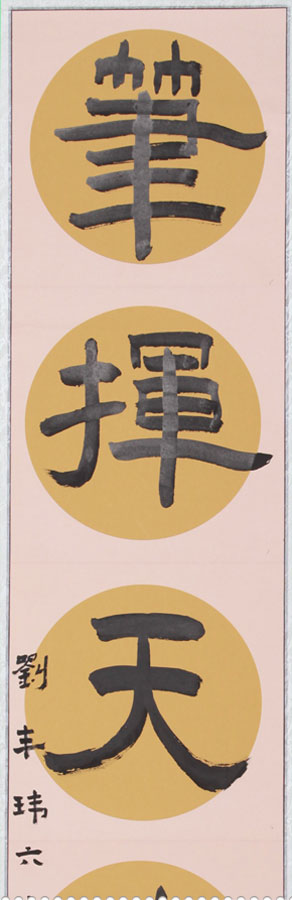 筆揮天
劉丰玮六